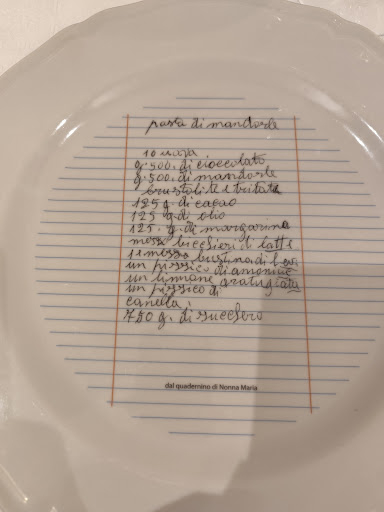 pasta di mandorle
10 uova
g. 500. di cioccolato
g. 500. di mandorle
brustolite e tritate
125 g. di cacao
125 g di olio
125. g. di margarina
mezzo bicchieri di latte
1 mezza bustina di
un pizzico di
un limone gratugiata
un pizzico di
canella.
750 g. di zucchero
dal quadernino di Nonna Maria